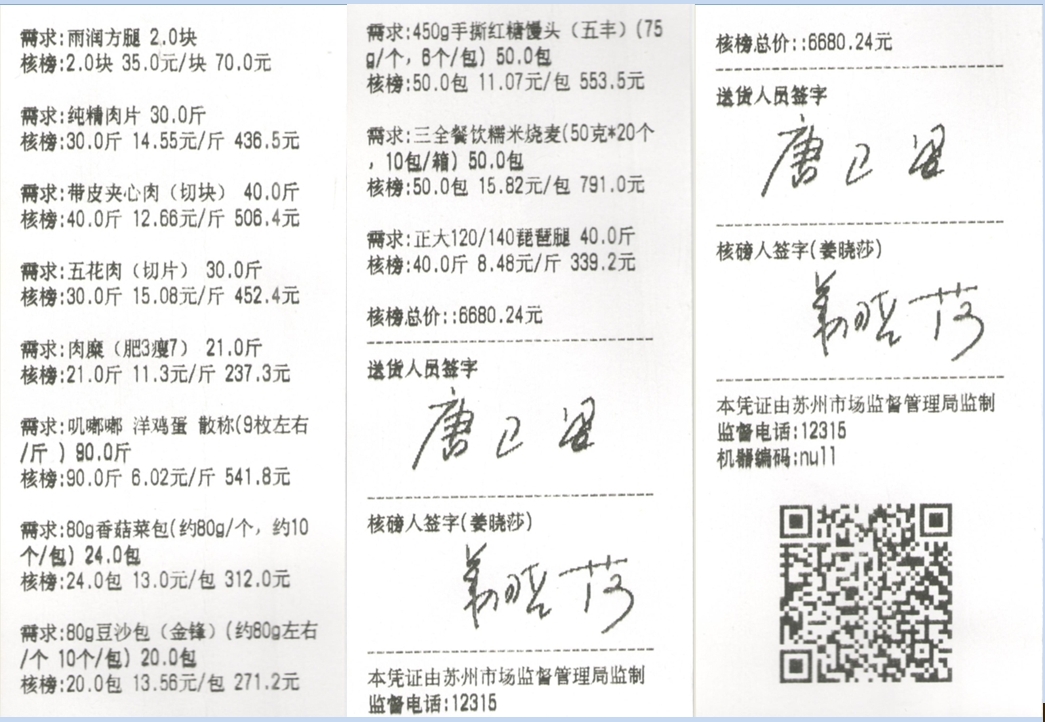 需求:雨润方腿 2.0块
核榜:2.0块 35.0元/块 70.0元
需求:纯精肉片 30.0斤
核榜:30.0斤 14.55元/斤 436.5元
需求:带皮夹心肉（切块） 40.0斤
核榜:40.0斤 12.66元/斤 506.4元
需求:五花肉（切片） 30.0斤
核榜:30.0斤 15.08元/斤 452.4元
需求:肉糜（肥3瘦7） 21.0斤
核榜:21.0斤 11.3元/斤 237.3元
需求:叽嘟嘟 洋鸡蛋 散称(9枚左右
/斤 ) 90.0斤
核榜:90.0斤 6.02元/斤 541.8元
需求:80g香菇菜包(约80g/个，约10
个/包) 24.0包
核榜:24.0包 13.0元/包 312.0元
需求:80g豆沙包（金锋）(约80g左右
/个 10个/包) 20.0包
核榜:20.0包 13.56元/包 271.2元
需求:450g手撕红糖馒头（五丰）(75
g/个，6个/包) 50.0包
核榜:50.0包 11.07元/包 553.5元
需求:三全餐饮糯米烧麦(50克*20个
，10包/箱) 50.0包
核榜:50.0包 15.82元/包 791.0元
需求:正大120/140琵琶腿 40.0斤
核榜:40.0斤 8.48元/斤 339.2元
核榜总价::6680.24元
送货人员签字
核磅人签字(姜晓莎)
姜晓莎
本凭证由苏州市场监督管理局监制
监督电话:12315
核榜总价::6680.24元
送货人员签字
核磅人签字(姜晓莎)
姜晓莎
本凭证由苏州市场监督管理局监制
监督电话:12315
机器编码:null